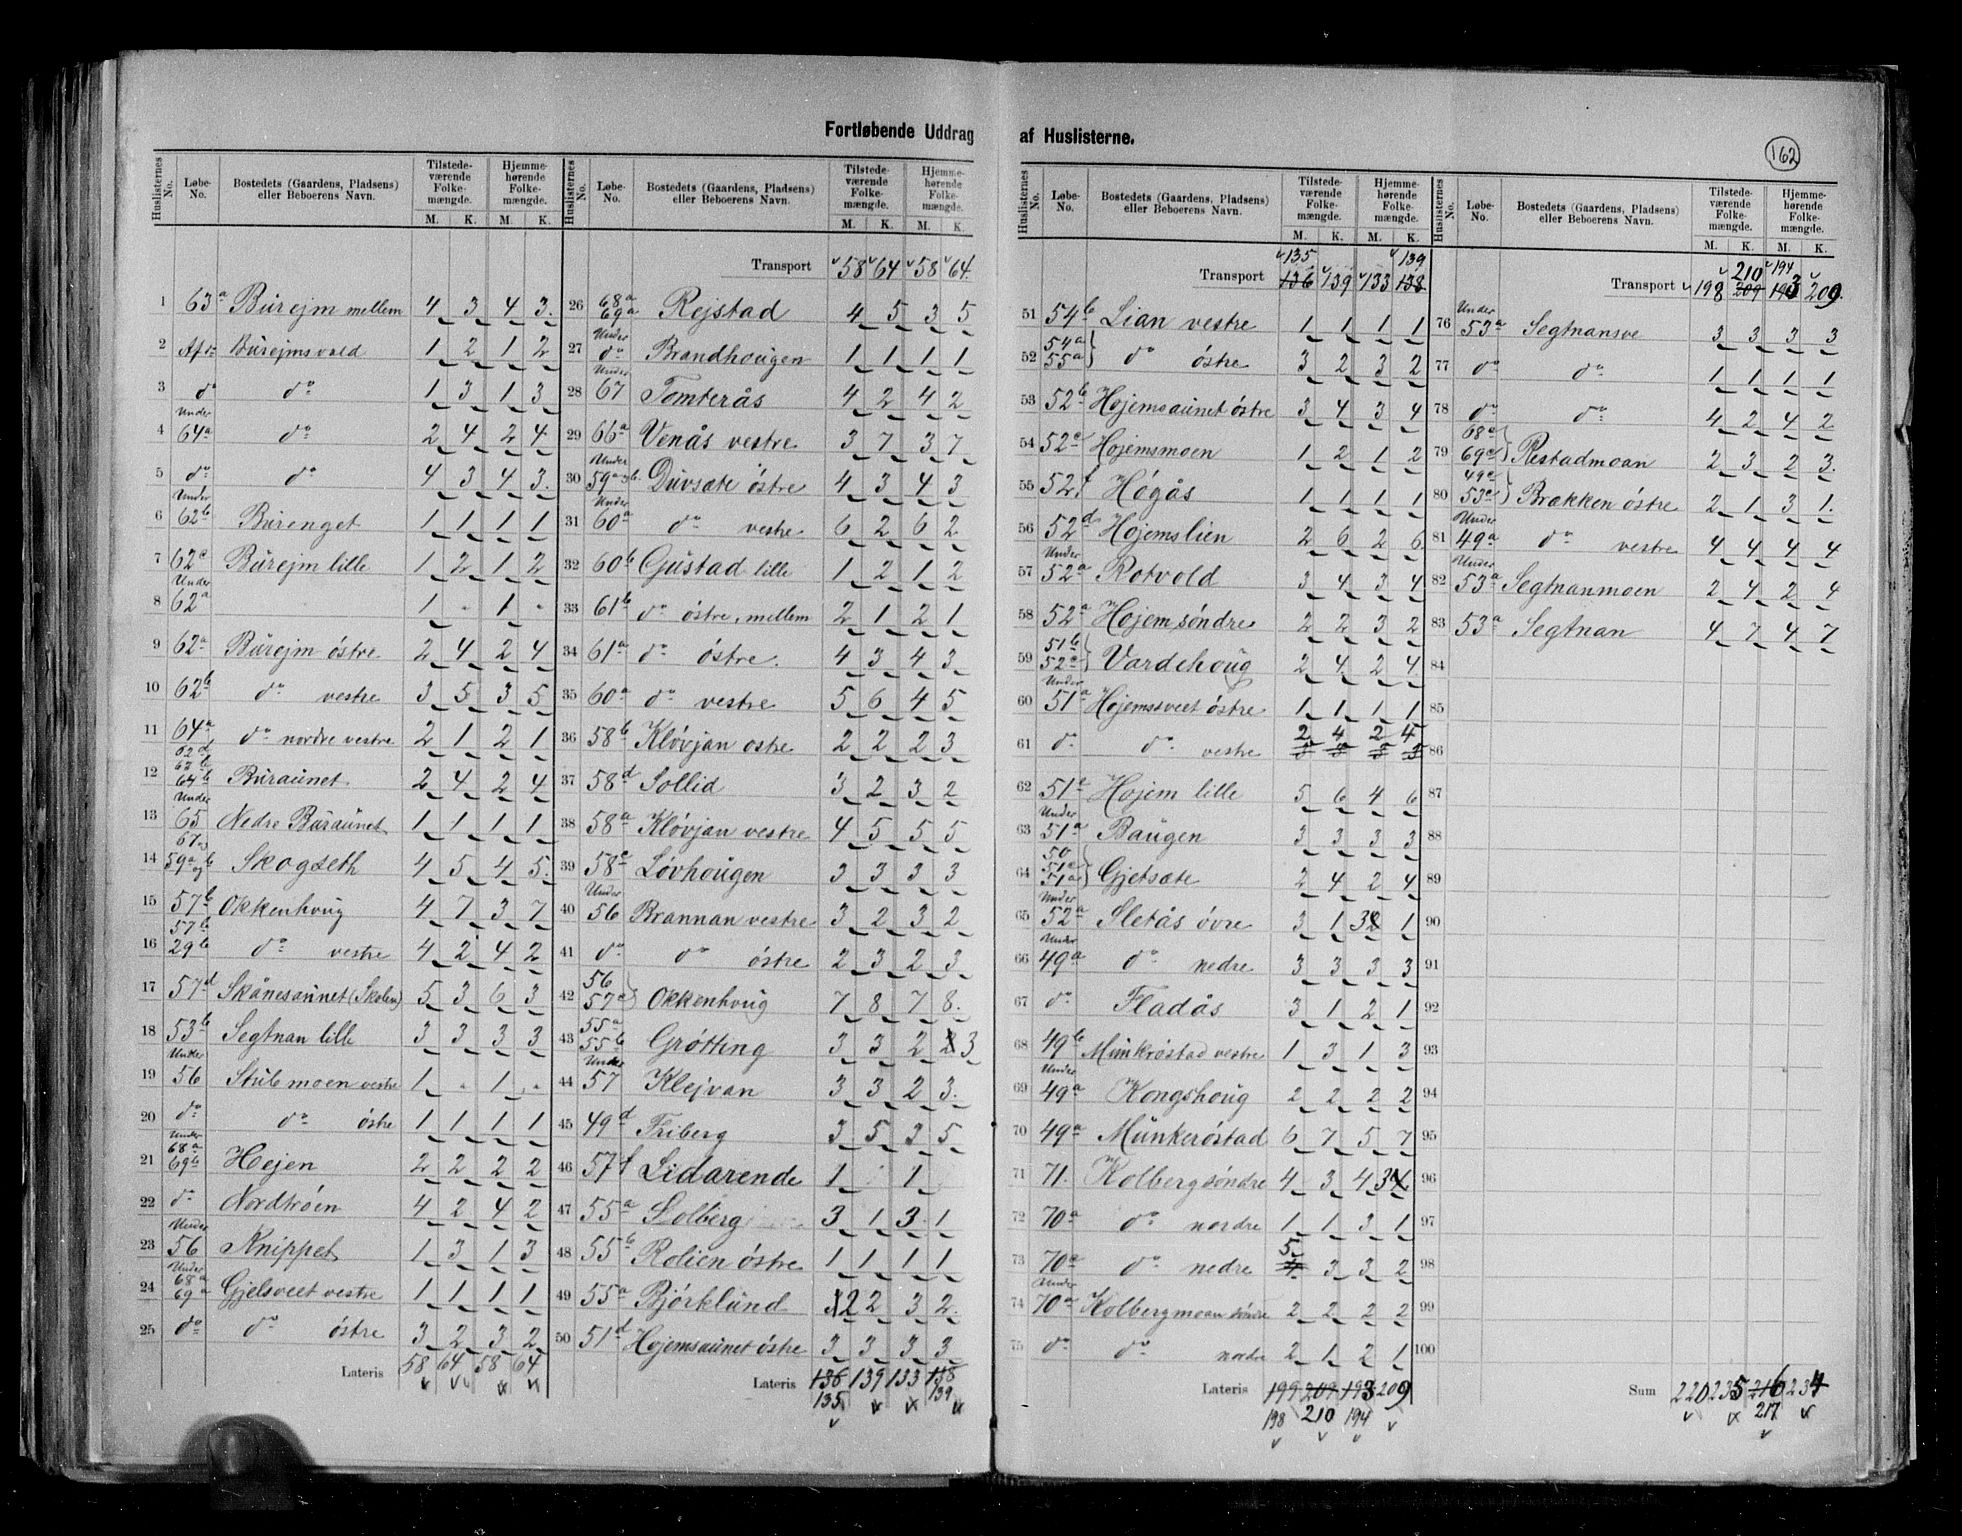 Fortløbende Uddrag af Huslisterne.
162
Huslisternes No. Løbe-No. Bostedets (Gaardens, Pladsens) eller Beboerens Navn. Tilstedeværende Folkemængde. M. K. Hjemmehørende Folkemængde. M. K.
1 63a Burejm mellem 4 3 4 3.
2 Af do Burejmsvald 1 2 1 2
3 do do 1 3 1 3
4 Under 64a do 2 4 2 4
5 do do 4 3 4 3.
6 Under 62b Burenget 1 1 1 1
7 62c Burejm lille 1 2 1 2
8 Under 62a 1 - 1 -
9 62a Burejm östre 2 4 2 4
10 62b do vestre 3 5 3 5
11 64a do nordre vestre 2 1 2 1
12 62d 62b 64b Buraunet 2 4 2 4
13 Under 65 Nedre Buraunet 1 1 1 1
14 67 og 59a og b Skogseth 4 5 4 5.
15 57b Okkenhoug 4 7 3 7
16 57b 29b do vestre 4 2 4 2
17 57d Skånesaunet (Skolen) 5 3 6 3
18 53b Segtnan lille 3 3 3 3
19 Under 56 Stubmoen vestre 1 - 1 -
20 do do östre 1 1 1 1
21 Under 68a 69b Hejen 2 2 2 2
22 do Nordtrøen 4 2 4 2
23 Under 56 Knippet 1 3 1 3
24 Under 68a 69a Gjelsveet vestre 1 1 1 1
25 do do östre 3 2 3 2
Lateris 58 64 58 64
Huslisternes No. Løbe-No. Bostedets (Gaardens, Pladsens) eller Beboerens Navn. Tilstedeværende Folkemængde. M. K. Hjemmehørende Folkemængde. M. K.
Transport 58 64 58 64.
26 68a 69a Rejstad 4 5 3 5
27 Under do Brandhougen 1 1 1 1
28 Under 67 Tomterås 4 2 4 2
29 66a Venås vestre 3 7 3 7
30 Under 59a og b. Duvsete östre 4 3 4 3
31 Under 60a do vestre 6 2 6 2
32 60b Gustad lille 1 2 1 2
33 61b do östre, mellem 2 1 2 1
34 61a do östre. 4 3 4 3
35 60a do vestre 5 6 4 5
36 58b Kløvjan ostre 2 2 2 3
37 58d Sollid 3 2 3 2
38 58a Kløvjan vestre 4 5 5 5
39 58c Lövhougen 3 3 3 3
40 Under 56 Brannan vestre 3 2 3 2
41 do do östre 2 3 2 3
42 56 57c Okkenhoug 7 8 7 8.
43 55a 55b Grøtting 3 3 2 2 3
44 Under 57 Klejvan 3 3 2 3.
45 49d Friberg 3 5 3 5
46 57f Lidarende 1 1
47 55a Solberg 3 1 3 1
48 55b Rolien östre 1 1 1 1
49 55a Bjørklund 2 2 3 2.
50 51d Hojemsaunet östre 3 3 3 3
Lateris 136 139 133 138
135 139
Huslisternes No. Løbe-No. Bostedets (Gaardens, Pladsens) eller Beboerens Navn. Tilstedeværende Folkemængde. M. K. Hjemmehørende Folkemængde. M. K.
135 139
Transport 136 139 133 138
51 54b Lian vestre 1 1 1 1
52 54a 55a do östre 3 2 3 2
53 52b Hojemsaunet östre 3 4 3 4
54 52e Hojemsmoen 1 2 1 2
55 52f Högås 1 1 1 1
56 52d Hojemslien 2 6 2 6
57 Under 52a Rotvold 3 4 3 4
58 52a Hojem söndre 2 2 3 2
59 51b 52c Vardehoug 2 4 2 4
60 Under 51a Hojemsveet östre 1 1 1 1
61 do do vestre 2 4 2 4
62 51c Hojem lille 5 6 4 6
63 Under 51a Baugen 3 3 3 3
64 50 51c 51a Gjetsete 2 4 2 4
65 Under 52a Sletås övre 3 1 3 2 1
66 Under 49a do nedre 3 3 3 3
67 do Fladås 3 1 2 1
68 49b Munkrøstad vestre 1 3 1 3
69 Under 49a Kongshoug 2 2 2 2
70 49a Munkerøstad 6 7 5 7
71 71. Kolberg söndre 4 3 4 3 4
72 70a do nordre 1 1 3 1
73 70a do nedre 5 4 3 3 2
74 Under 70a Kolbergmoen söndre 2 2 2 2
75 do do nordre 2 1 2 1
Lateris 199 209 193 209
198 210 194
Huslisternes No. Løbe-No. Bostedets (Gaardens, Pladsens) eller Beboerens Navn. Tilstedeværende Folkemængde. M. K. Hjemmehørende Folkemængde. M. K.
210 194
Transport 198 209 193 209.
76 Under 53a Segtnansve 3 3 3 3
77 do do 1 1 1 1
78 do do 4 2 4 2
79 68a 69c Restadmoan 2 3 2 3.
80 49c 53c Brakken östre 2 1 3 1.
81 Under 49a do vestre 4 4 4 4
82 Under 53a Segtnanmoen 2 4 2 4
83 53a Segtnan 4 7 4 7
84
85
86
87
88
89
90
91
92
93
94
95
96
97
98
99
100
Sum 220 235 216 234
217